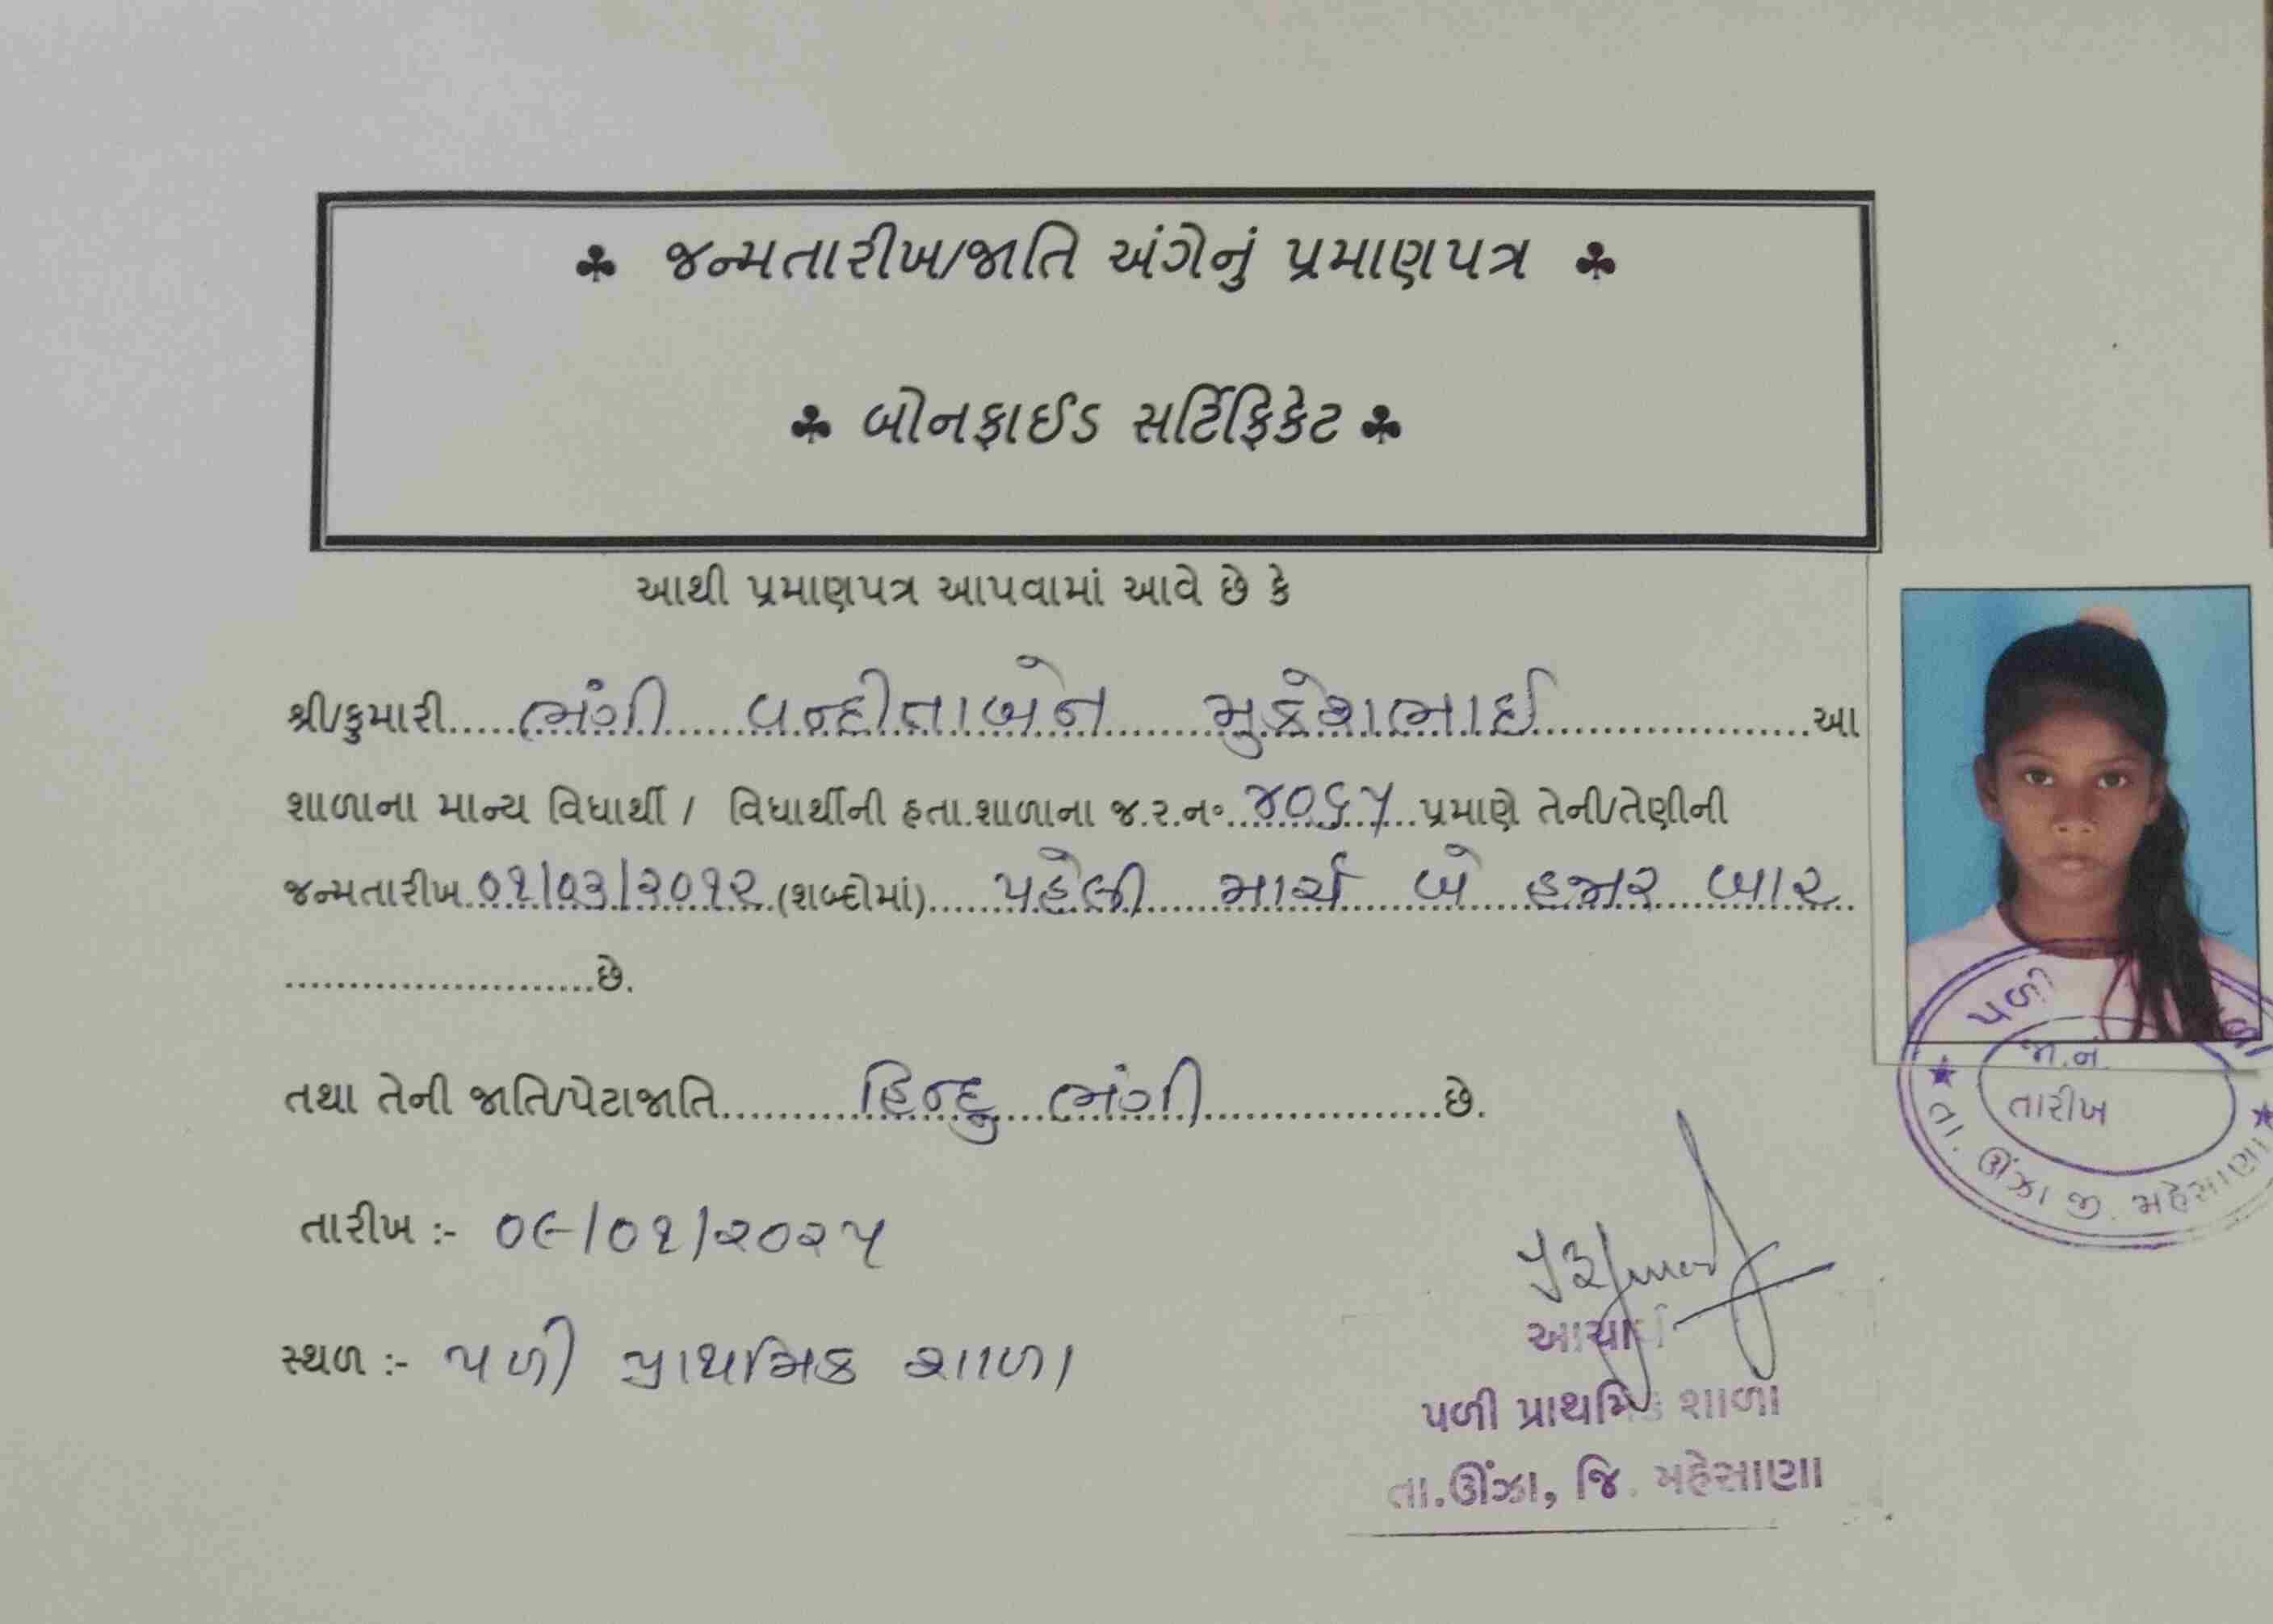 ♣ જન્મતારીખ/જાતિ અંગેનું પ્રમાણપત્ર ♣
♣ બોનફાઈડ સર્ટિફિકેટ ♣
આથી પ્રમાણપત્ર આપવામાં આવે છે કે
શ્રી/કુમારી.....ભંગી.....વન્દીતાબેન.....મુકેશભાઈ.....આ
શાળાના માન્ય વિદ્યાર્થી / વિદ્યાર્થીની હતા.શાળાના જ.ર.નં.૪૦૬૫..પ્રમાણે તેની/તેણીની
જન્મતારીખ.૦૧/૦૩/૨૦૧૨.(શબ્દોમાં).....પહેલી.....માર્ચ.....બે.....હજાર.....બાર
.....છે.
તથા તેની જાતિ/પેટાજાતિ.....હિન્દુ.....ભંગી.....છે.
તારીખ :- ૦૯/૦૧/૨૦૨૫
સ્થળ :- પળી પ્રાથમિક શાળા
આચાર્ય
પળી પ્રાથમિક શાળા
તા.ઊંઝા, જિ. મહેસાણા
પળી
જા.નં.
તારીખ
તા. ઊંઝા જી. મહેસાણા